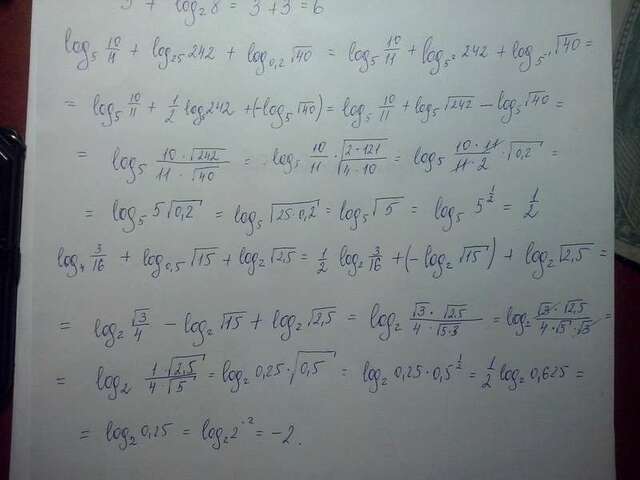 3 + log₂8 = 3+3=6
log₅ 10/11 + log₂₅ 242 + log₀,₂ √40 = log₅ 10/11 + log₅² 242 + log₅⁻¹ √40 =
= log₅ 10/11 + 1/2 log₅242 + (-log₅ √40) = log₅ 10/11 + log₅ √242 - log₅ √40 =
= log₅ (10 · √242)/(11 · √40) = log₅ 10/11 · √(2·121)/√(4·10) = log₅ (10 · 11)/(11 · 2) · √0,2 =
= log₅ 5√0,2 = log₅ √(25·0,2) = log₅ √5 = log₅ 5^(1/2) = 1/2
log₄ 3/16 + log₀,₅ √15 + log₂ √2,5 = 1/2 log₂ 3/16 + (-log₂ √15) + log₂ √2,5 =
= log₂ √3/4 - log₂ √15 + log₂ √2,5 = log₂ (√3 · √2,5)/(4 · √5·3) = log₂ (√3 · √2,5)/(4 · √5 · √3) =
= log₂ (1 · √2,5)/(4 · √5) = log₂ 0,25 · √0,5 = log₂ 0,25 · 0,5^(1/2) = 1/2 log₂ 0,625 =
= log₂ 0,25 = log₂2⁻² = -2.